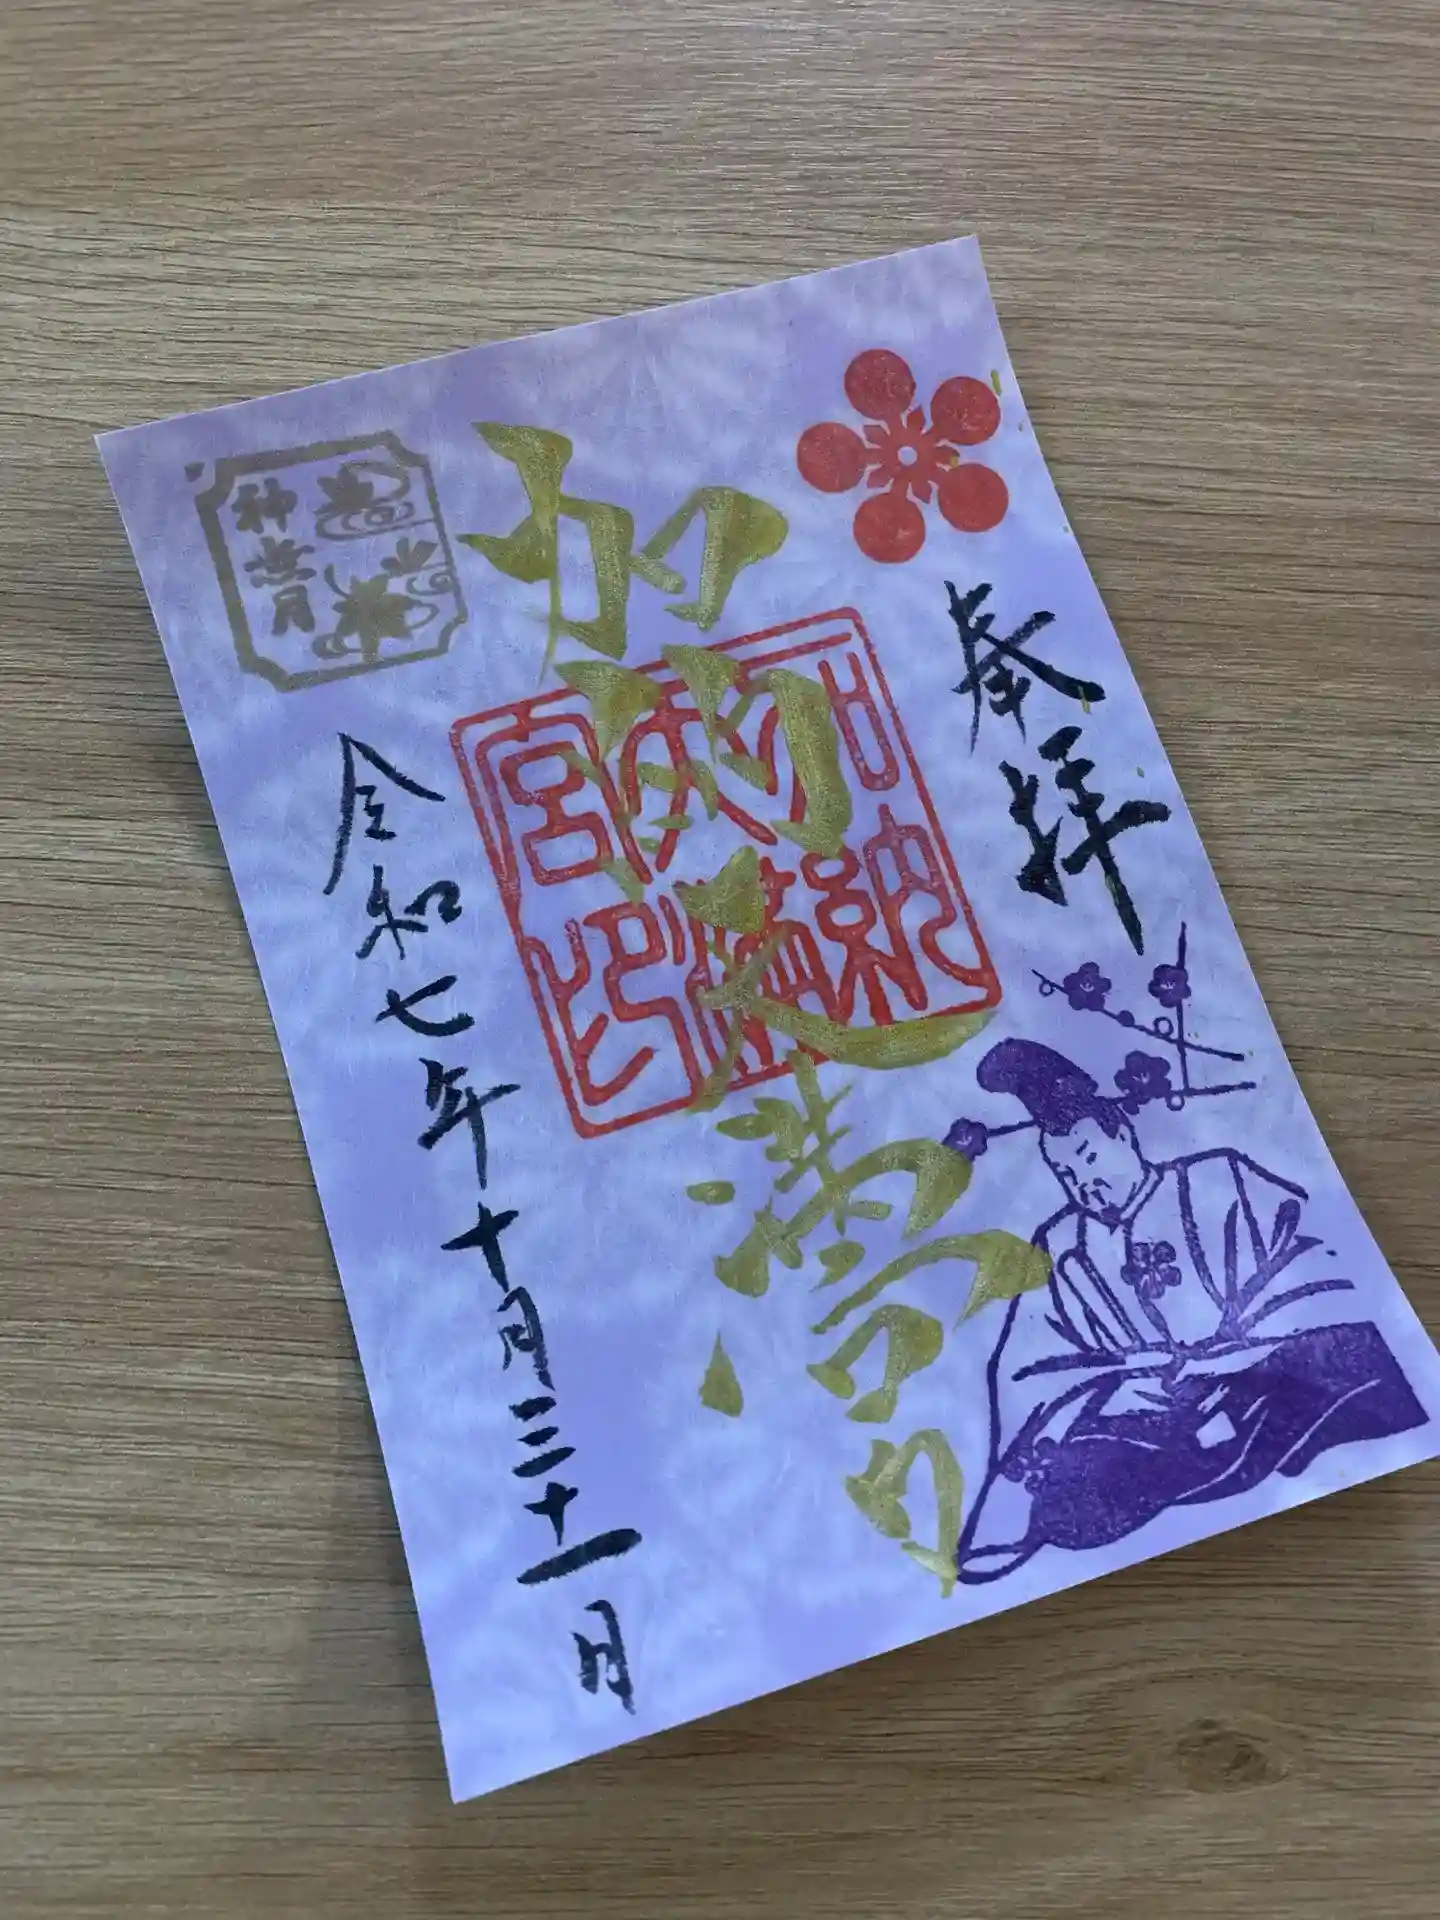 奉拝
加納天満宮
加納
天満
宮印
神無月
令和七年十月三十一日